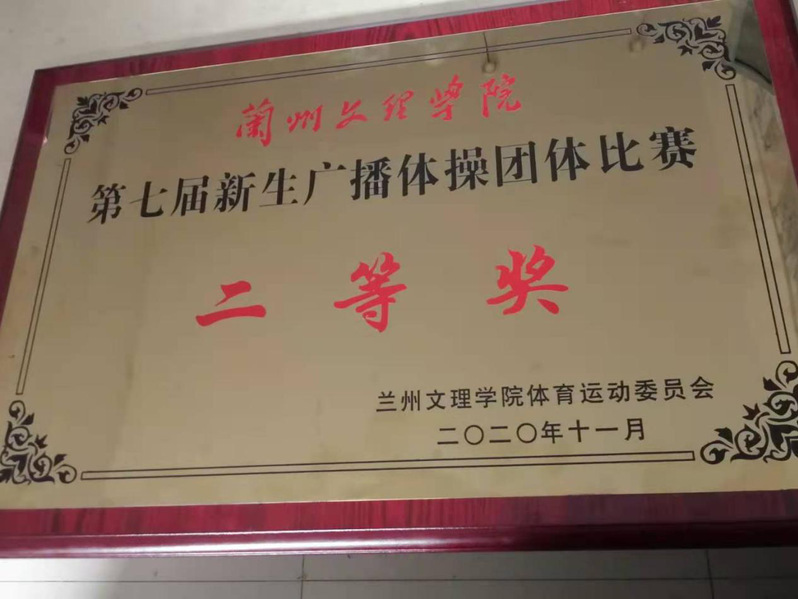 蘭州文理学院
第七届新生广播体操团体比赛
二等奖
兰州文理学院体育运动委员会
二〇二〇年十一月